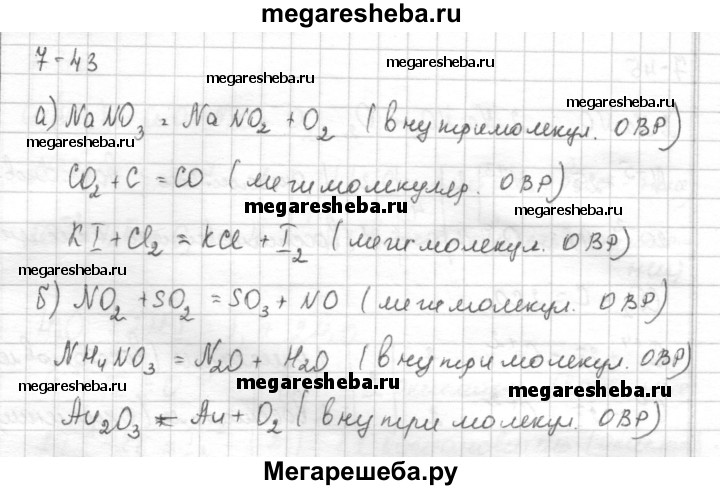 megaresheba.ru
7-43
megaresheba.ru
megaresheba.ru
megaresheba.ru
а) NaNO₃ = NaNO₂ + O₂ (внутримолекул. ОВР)
CO₂ + C = CO (межмолекуляр. ОВР)
megaresheba.ru
megaresheba.ru
KI + Cl₂ = KCl + I₂ (межмолекул. ОВР)
megaresheba.ru
б) NO₂ + SO₂ = SO₃ + NO (межмолекул. ОВР)
megaresheba.ru
NH₄NO₃ = N₂O + H₂O (внутримолекул. ОВР)
megaresheba.ru
megaresheba.ru
megaresheba.ru
Au₂O₃ = Au + O₂ (внутримолекул. ОВР)
Мегарешеба.ру